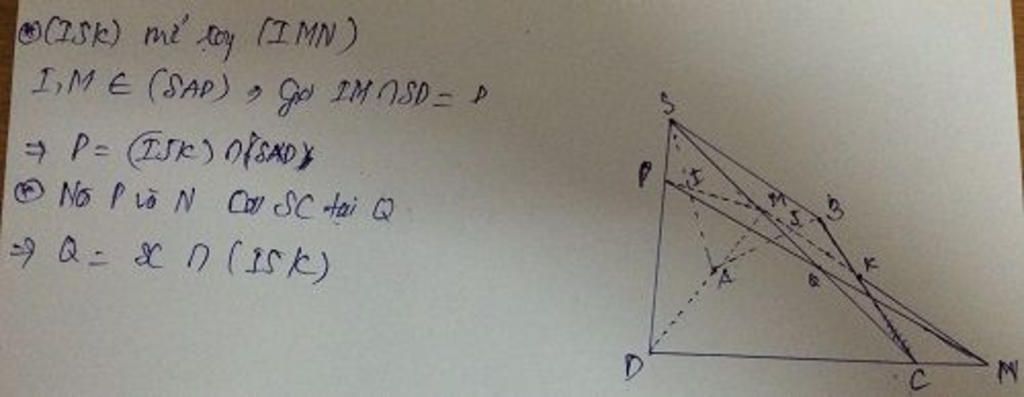 (ISK) mở rộng (IMN)
I, M ∈ (SAD), Gọi IM ∩ SD = P
⇒ P = (ISK) ∩ (SAD)
Nối P và N cắt SC tại Q
⇒ Q = SC ∩ (ISK)
S
P
I
M
S
B
A
Q
K
D
C
N